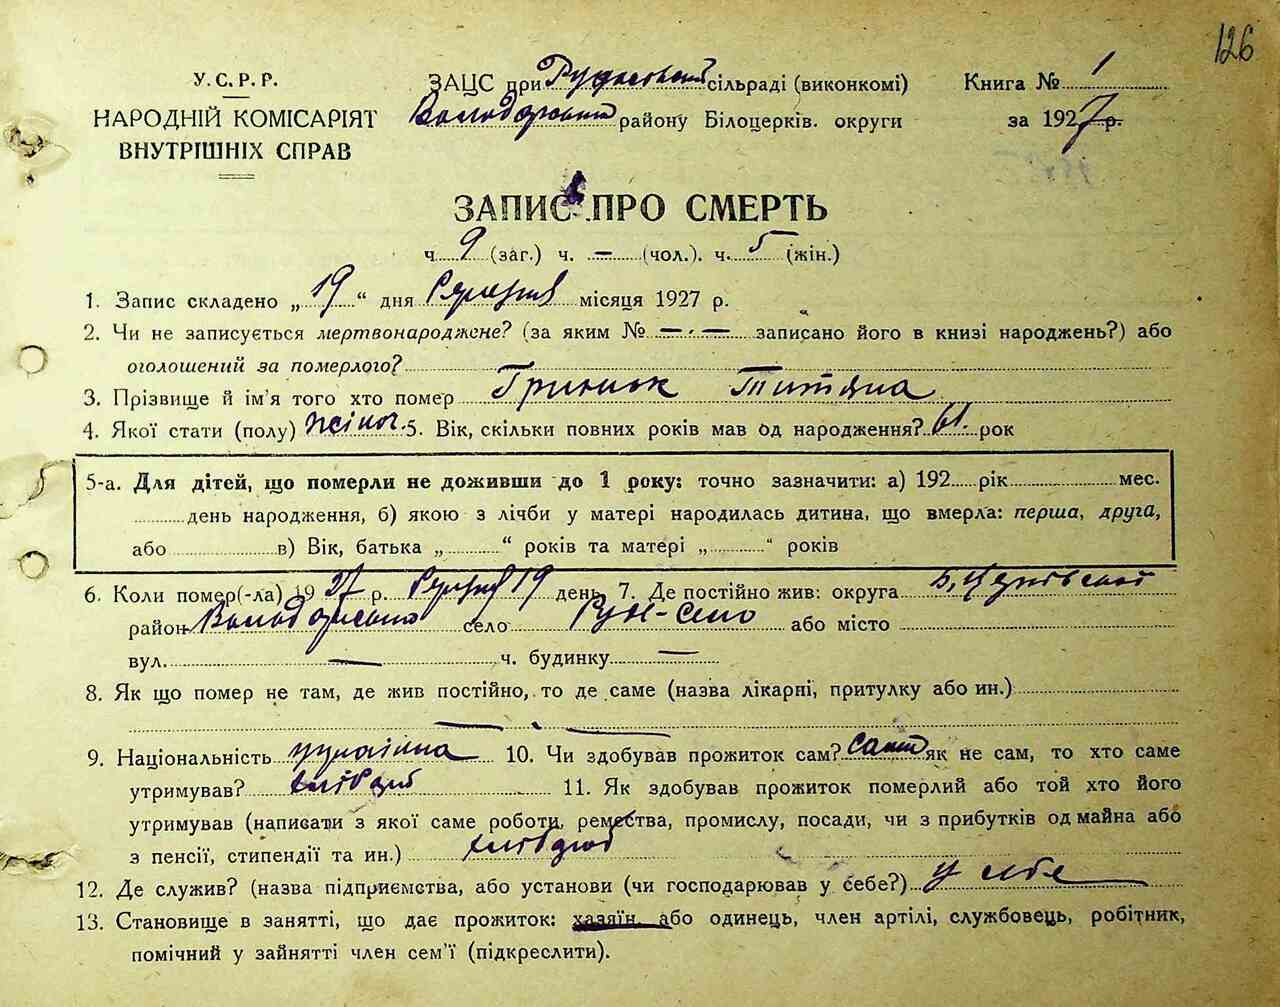 126
У.С.Р.Р.
НАРОДНІЙ КОМІСАРІЯТ
ВНУТРІШНІХ СПРАВ
ЗАЦС при сільраді (виконкомі)
Володарський району Білоцерків. округи
Книга № 1
за 1927 р.
ЗАПИС ПРО СМЕРТЬ
ч. 9 (заг.) ч. — (чол.). ч. 5 (жін.)
1. Запис складено „ 19 “ дня місяця 1927 р.
2. Чи не записується мертвонароджене? (за яким № — . — записано його в книзі народжень?) або
оголошений за померлого?
3. Прізвище й ім'я того хто помер Титяна
4. Якої стати (полу) жіноч. 5. Вік, скільки повних років мав од народження? 61. рок
5-а. Для дітей, що померли не доживши до 1 року: точно зазначити: а) 192 рік мес.
день народження, б) якою з лічби у матері народилась дитина, що вмерла: перша, друга,
або в) Вік, батька „ “ років та матері „ “ років
6. Коли помер(-ла) 19 27 р. 19 день 7. Де постійно жив: округа Б, Церківської
район село або місто
вул. — ч. будинку —
8. Як що помер не там, де жив постійно, то де саме (назва лікарні, притулку або ин.)
9. Національність 10. Чи здобував прожиток сам? сам як не сам, то хто саме
утримував? 11. Як здобував прожиток померлий або той хто його
утримував (написати з якої саме роботи, ремества, промислу, посади, чи з прибутків од майна або
з пенсії, стипендії та ин.)
12. Де служив? (назва підприємства, або установи (чи господарював у себе?) у себе
13. Становище в занятті, що дає прожиток: хазяїн або одинець, член артілі, службовець, робітник,
помічний у зайнятті член сем'ї (підкреслити).